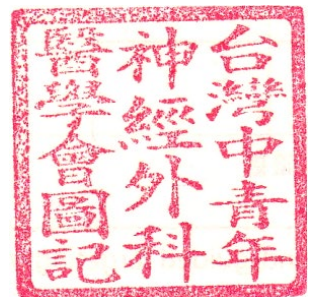 台灣中青年
神經外科
醫學會圖記